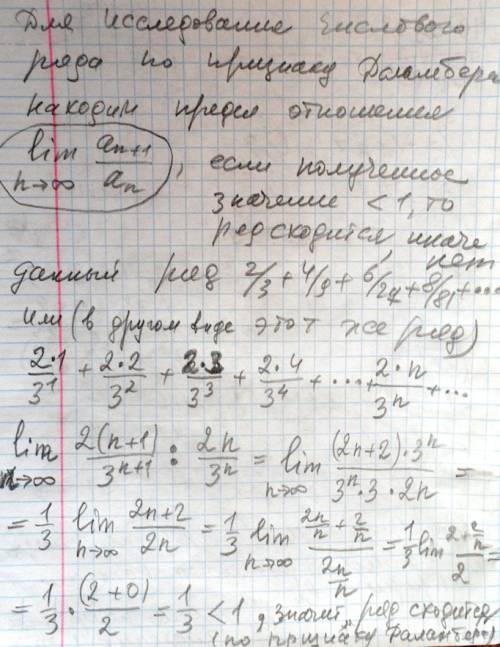 Для исследование числового
ряда по признаку Даламбера
находим предел отношения
lim n→∞ aₙ₊₁/aₙ , если полученное
значение < 1, то
ряд сходится, иначе
нет
данный ряд 2/3 + 4/9 + 6/27 + 8/81 + ...
или (в другом виде этот же ряд)
2·1/3¹ + 2·2/3² + 2·3/3³ + 2·4/3⁴ + ... + 2·n/3ⁿ + ...
lim n→∞ 2(n+1)/3ⁿ⁺¹ : 2n/3ⁿ = lim n→∞ (2n+2)·3ⁿ/(3ⁿ·3·2n) =
= 1/3 lim n→∞ (2n+2)/2n = 1/3 lim n→∞ (2n/n + 2/n)/(2n/n) = 1/3 lim (2+2/n)/2 =
= 1/3 · (2+0)/2 = 1/3 < 1, значит ряд сходится
(по признаку Даламбера)